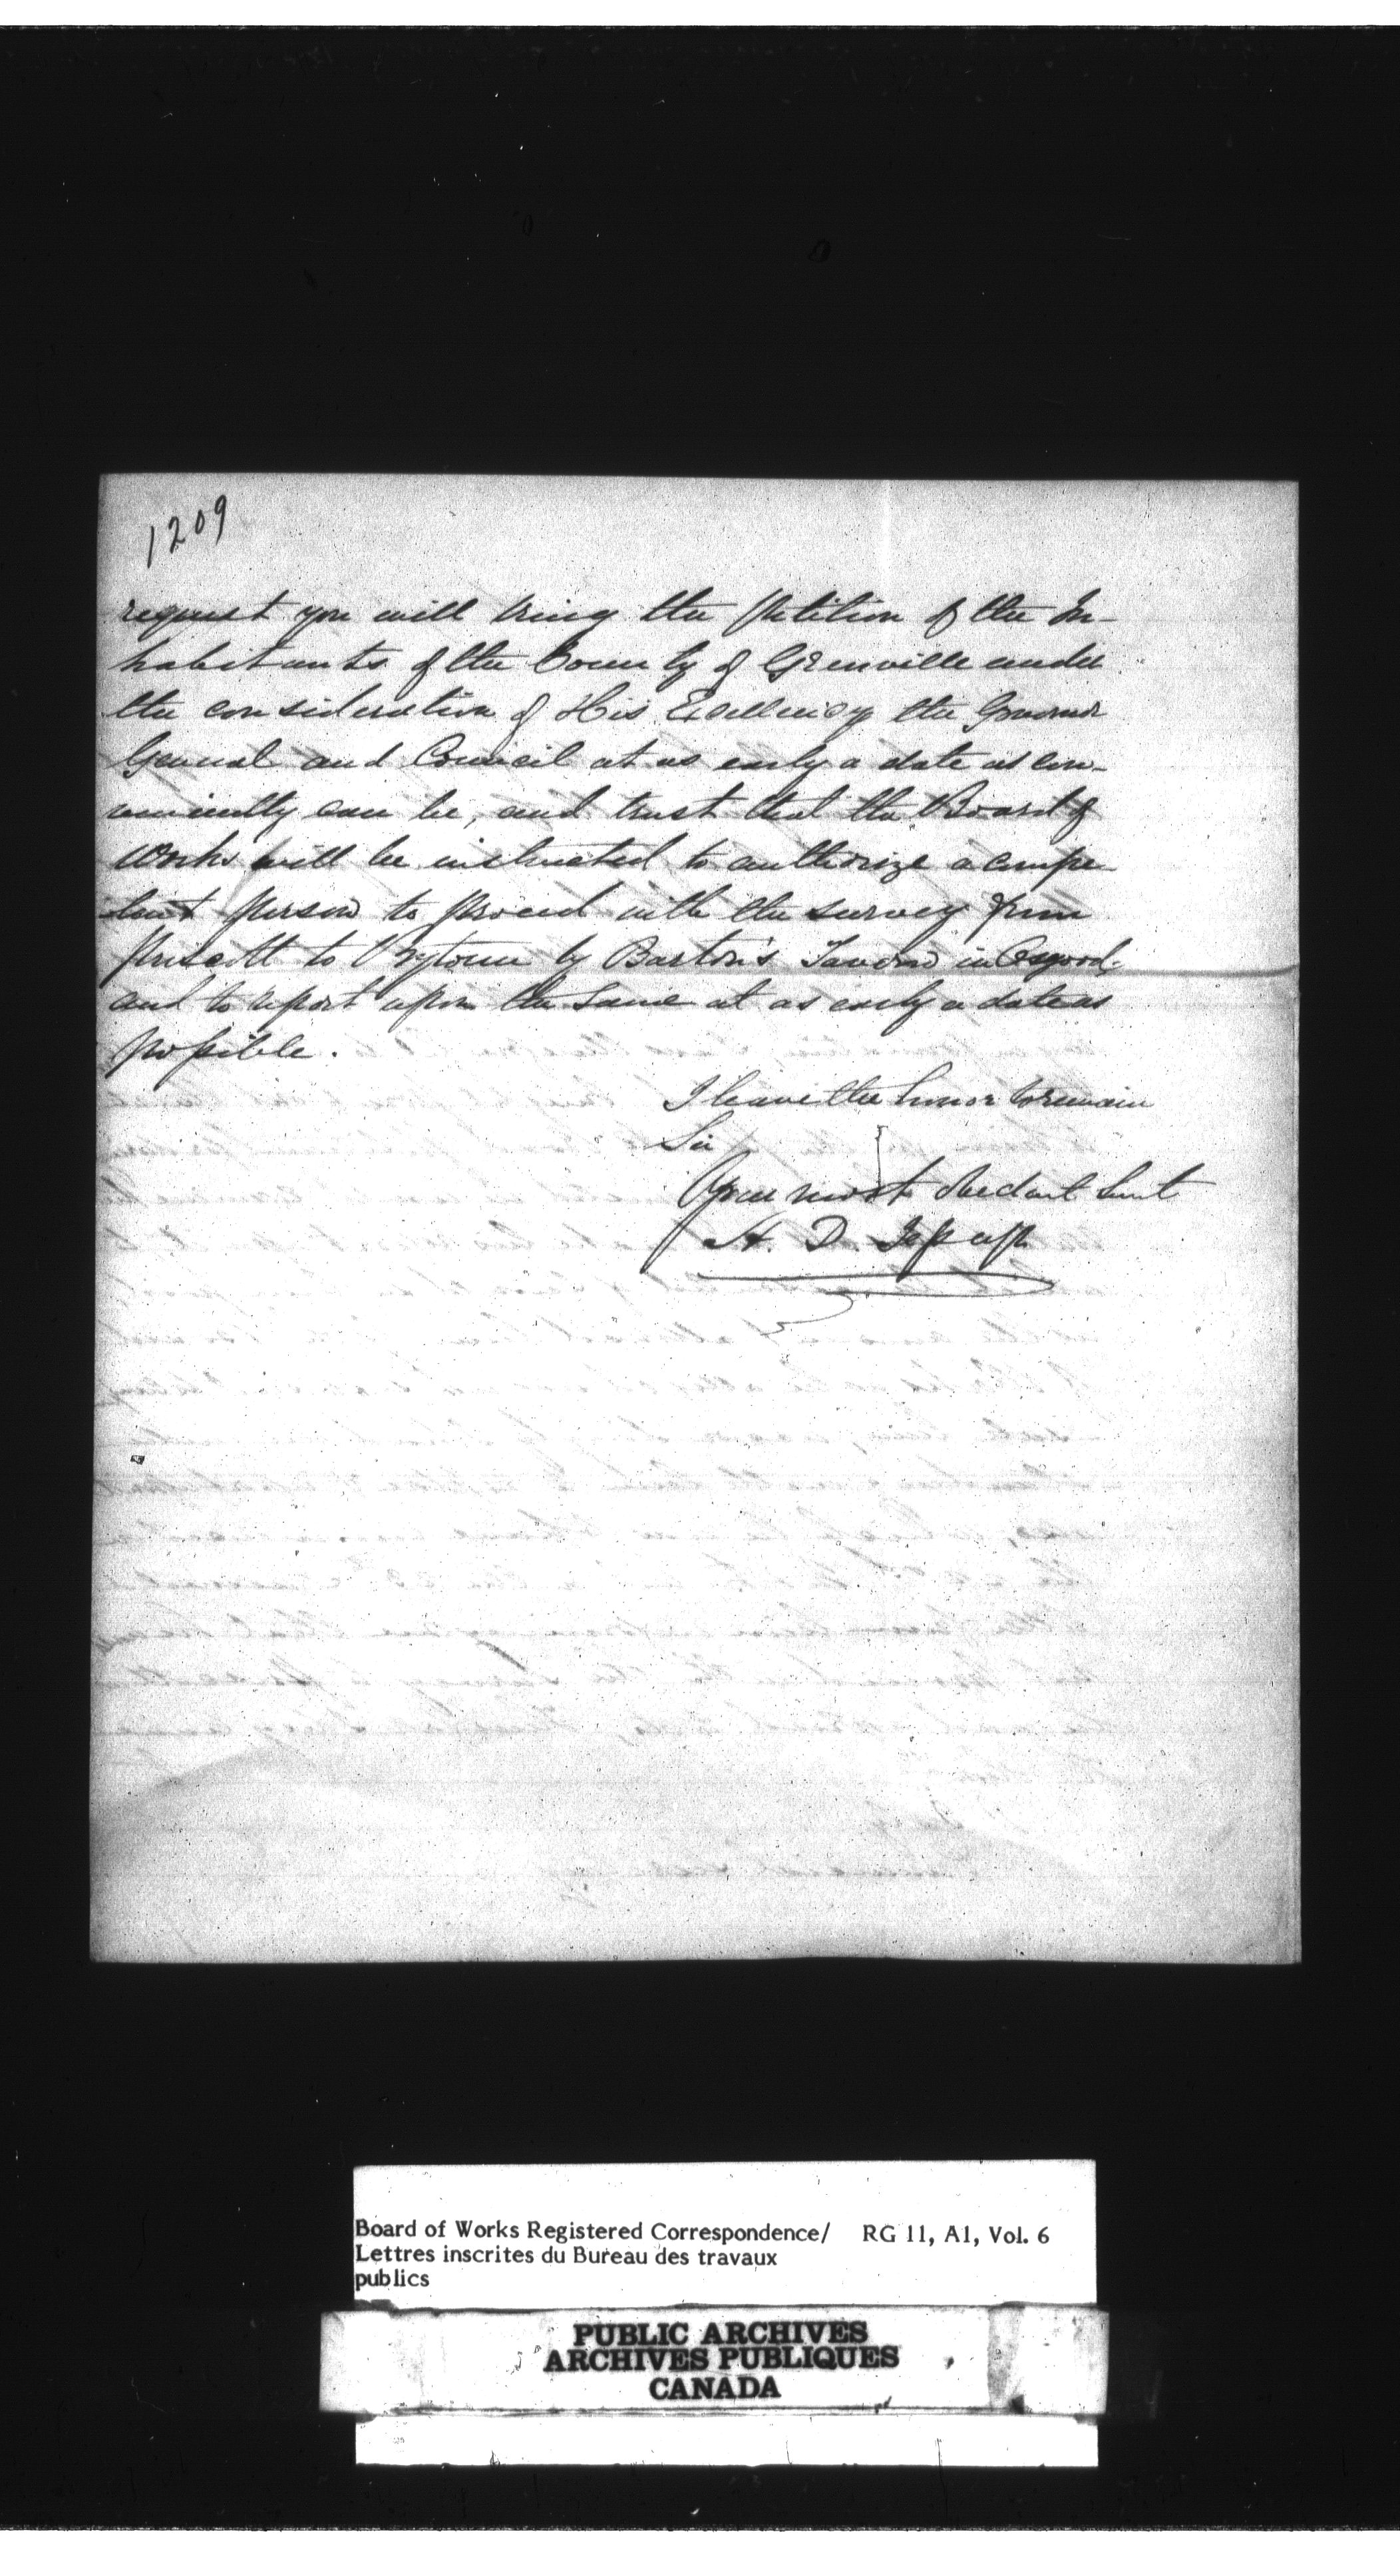 1209
request you will bring the petition of the In-
habitants of the County of Grenville under
the consideration of His Excellency the Governor
General and Council at as early a date as con-
veniently can be, and trust that the Board of
Works will be instructed to authorize a compe
tent person to proceed with the survey from
Prescott to Bytown by Barton's Tavern in Osgood
and to report upon the same at as early a date as
possible.
I have the honor to remain
Sir
Your most obedant Servt
A. D.
Board of Works Registered Correspondence/ RG 11, A1, Vol. 6
Lettres inscrites du Bureau des travaux
publics
PUBLIC ARCHIVES
ARCHIVES PUBLIQUES
CANADA